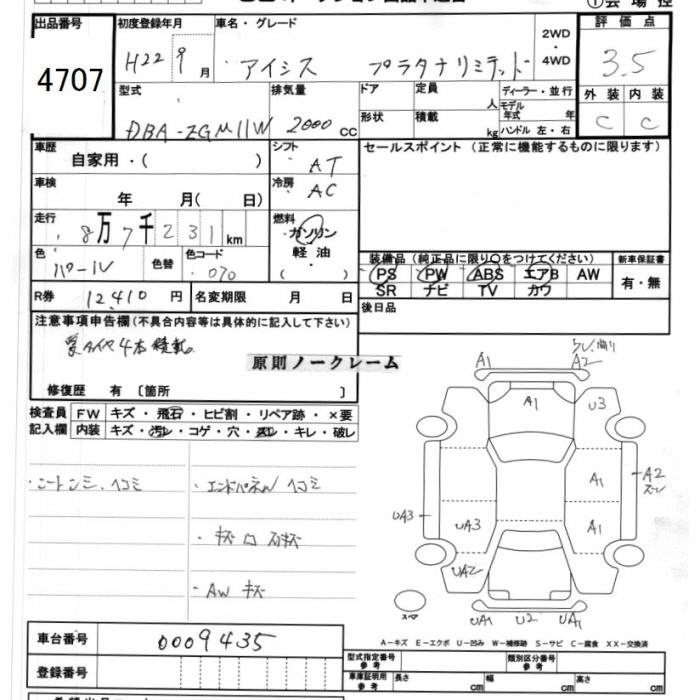 出品番号 4707
初度登録年月 H22 9月
車名・グレード アイシス プラタナリミテッド
2WD・4WD
評価点 3.5
外装 C 内装 C
型式 DBA-ZGM11W
排気量 2000 CC
ドア 定員 人
形状 積載 kg
ディーラー・並行
モデル年式 年
ハンドル 左・右
車歴 自家用・( )
シフト AT
セールスポイント (正常に機能するものに限ります)
車検 年 月(日)
冷房 AC
走行 8万7千231km
燃料 ガソリン・軽油・( )
色 パール 色替 色コード 070
装備品 (純正品に限り○をつけてください) 新車保証書
PS PW ABS エアB AW 有・無
SR ナビ TV カワ
R券 12410円 名変期限 月 日
後日品
注意事項申告欄(不具合内容等は具体的に記入して下さい)
夏タイヤ4本積載
原則ノークレーム
修復歴 有 〔箇所 〕
検査員記入欄
FW キズ・飛石・ヒビ割・リペア跡・×要
内装 キズ・汚レ・コゲ・穴・スレ・キレ・破レ
・エンドパネル ヘコミ
・AW キズ
A1 A2
A1 U3
A1 A2
A1
UA3 UA3
UA2
スペア
UA1 U2 UA1
A-キズ E-エクボ U-凹み W-補修跡 S-サビ C-腐食 XX-交換済
車台番号 0009435
登録番号
型式指定番号 参考 類別区分番号 参考
車庫証明用 参考 長さ cm 幅 cm 高さ cm